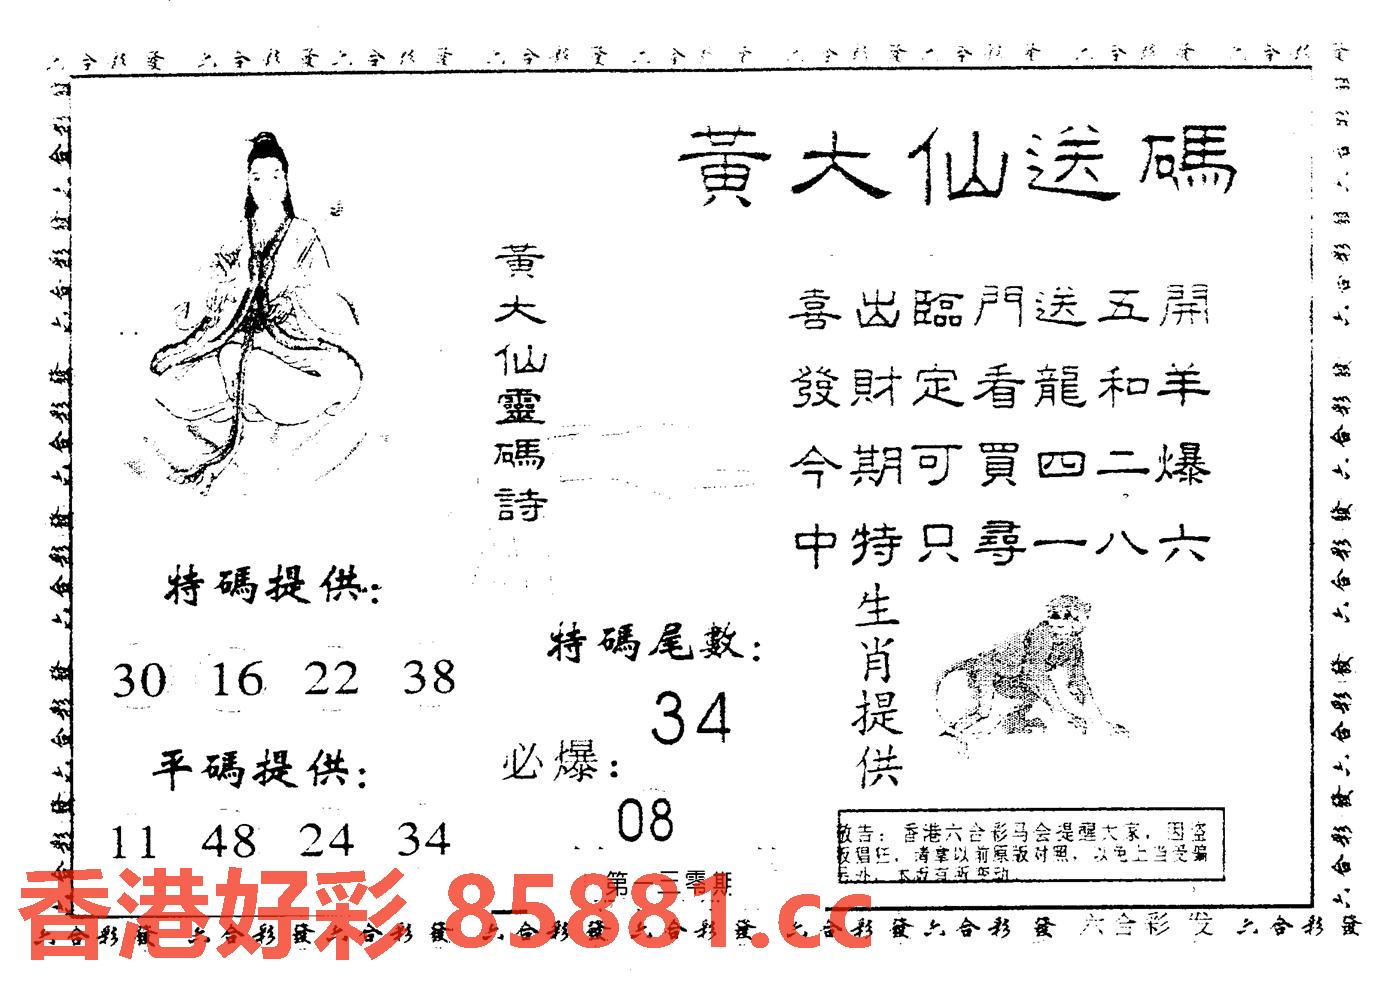 六合彩發 六合彩發 六合彩發 六合彩發 六合彩發 六合彩發
黃大仙送碼
黃大仙靈碼詩
喜出臨門送五開
發財定看龍和羊
今期可買四二爆
中特只尋一八六
特碼提供：
30 16 22 38
平碼提供：
11 48 24 34
特碼尾數：
34
必爆：
08
第一三零期
生肖提供
敬告：香港六合彩马会提醒大家，因盗
版猖狂，请拿以前原版对照，以免上当受骗
香港好彩 85881.cc
六合彩發 六合彩發 六合彩發 六合彩發 六合彩發 六合彩發 六合彩發 六合彩发 六合彩發